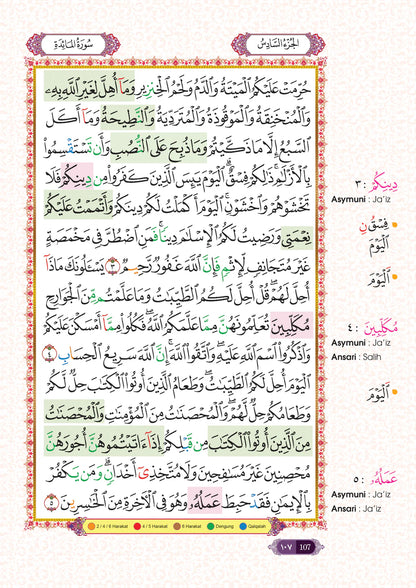 سُورَةُ المَائِدَةِ
الجُزْءُ السَّادِسُ
حُرِّمَتْ عَلَيْكُمُ الْمَيْتَةُ وَالدَّمُ وَلَحْمُ الْخِنزِيرِ وَمَآ أُهِلَّ لِغَيْرِ اللَّهِ بِهِۦ
وَالْمُنْخَنِقَةُ وَالْمَوْقُوذَةُ وَالْمُتَرَدِّيَةُ وَالنَّطِيحَةُ وَمَآ أَكَلَ
السَّبُعُ إِلَّا مَا ذَكَّيْتُمْ وَمَا ذُبِحَ عَلَى النُّصُبِ وَأَن تَسْتَقْسِمُوا۟
بِالْأَزْلَٰمِ ۚ ذَٰلِكُمْ فِسْقٌ ۗ الْيَوْمَ يَئِسَ الَّذِينَ كَفَرُوا۟ مِن دِينِكُمْ فَلَا
تَخْشَوْهُمْ وَاخْشَوْنِ ۚ الْيَوْمَ أَكْمَلْتُ لَكُمْ دِينَكُمْ وَأَتْمَمْتُ عَلَيْكُمْ
نِعْمَتِى وَرَضِيتُ لَكُمُ الْإِسْلَٰمَ دِينًا ۚ فَمَنِ اضْطُرَّ فِى مَخْمَصَةٍ
غَيْرَ مُتَجَانِفٍ لِّإِثْمٍ ۙ فَإِنَّ اللَّهَ غَفُورٌ رَّحِيمٌ ٣ يَسْـَٔلُونَكَ مَاذَآ
أُحِلَّ لَهُمْ ۖ قُلْ أُحِلَّ لَكُمُ الطَّيِّبَٰتُ ۙ وَمَا عَلَّمْتُم مِّنَ الْجَوَارِحِ
مُكَلِّبِينَ تُعَلِّمُونَهُنَّ مِمَّا عَلَّمَكُمُ اللَّهُ ۖ فَكُلُوا۟ مِمَّآ أَمْسَكْنَ عَلَيْكُمْ
وَاذْكُرُوا۟ اسْمَ اللَّهِ عَلَيْهِ ۖ وَاتَّقُوا۟ اللَّهَ ۚ إِنَّ اللَّهَ سَرِيعُ الْحِسَابِ ٤
الْيَوْمَ أُحِلَّ لَكُمُ الطَّيِّبَٰتُ ۖ وَطَعَامُ الَّذِينَ أُوتُوا۟ الْكِتَٰبَ حِلٌّ لَّكُمْ
وَطَعَامُكُمْ حِلٌّ لَّهُمْ ۖ وَالْمُحْصَنَٰتُ مِنَ الْمُؤْمِنَٰتِ وَالْمُحْصَنَٰتُ
مِنَ الَّذِينَ أُوتُوا۟ الْكِتَٰبَ مِن قَبْلِكُمْ إِذَآ ءَاتَيْتُمُوهُنَّ أُجُورَهُنَّ
مُحْصِنِينَ غَيْرَ مُسَٰفِحِينَ وَلَا مُتَّخِذِىٓ أَخْدَانٍ ۗ وَمَن يَكْفُرْ
بِالْإِيمَٰنِ فَقَدْ حَبِطَ عَمَلُهُۥ وَهُوَ فِى الْءَاخِرَةِ مِنَ الْخَٰسِرِينَ ٥
٣ : دِينِكُمْ
Asymuni : Ja'iz
فِسْقٌ نِ
الْيَوْمَ
اَلْيَوْمَ
٤ : مُكَلِّبِينَ
Asymuni : Ja'iz
Ansari : Salih
اَلْيَوْمَ
٥ : عَمَلُهُۥ
Asymuni : Ja'iz
Ansari : Ja'iz
2 / 4 / 6 Harakat 4 / 5 Harakat 6 Harakat Dengung Qalqalah
١٠٧ 107